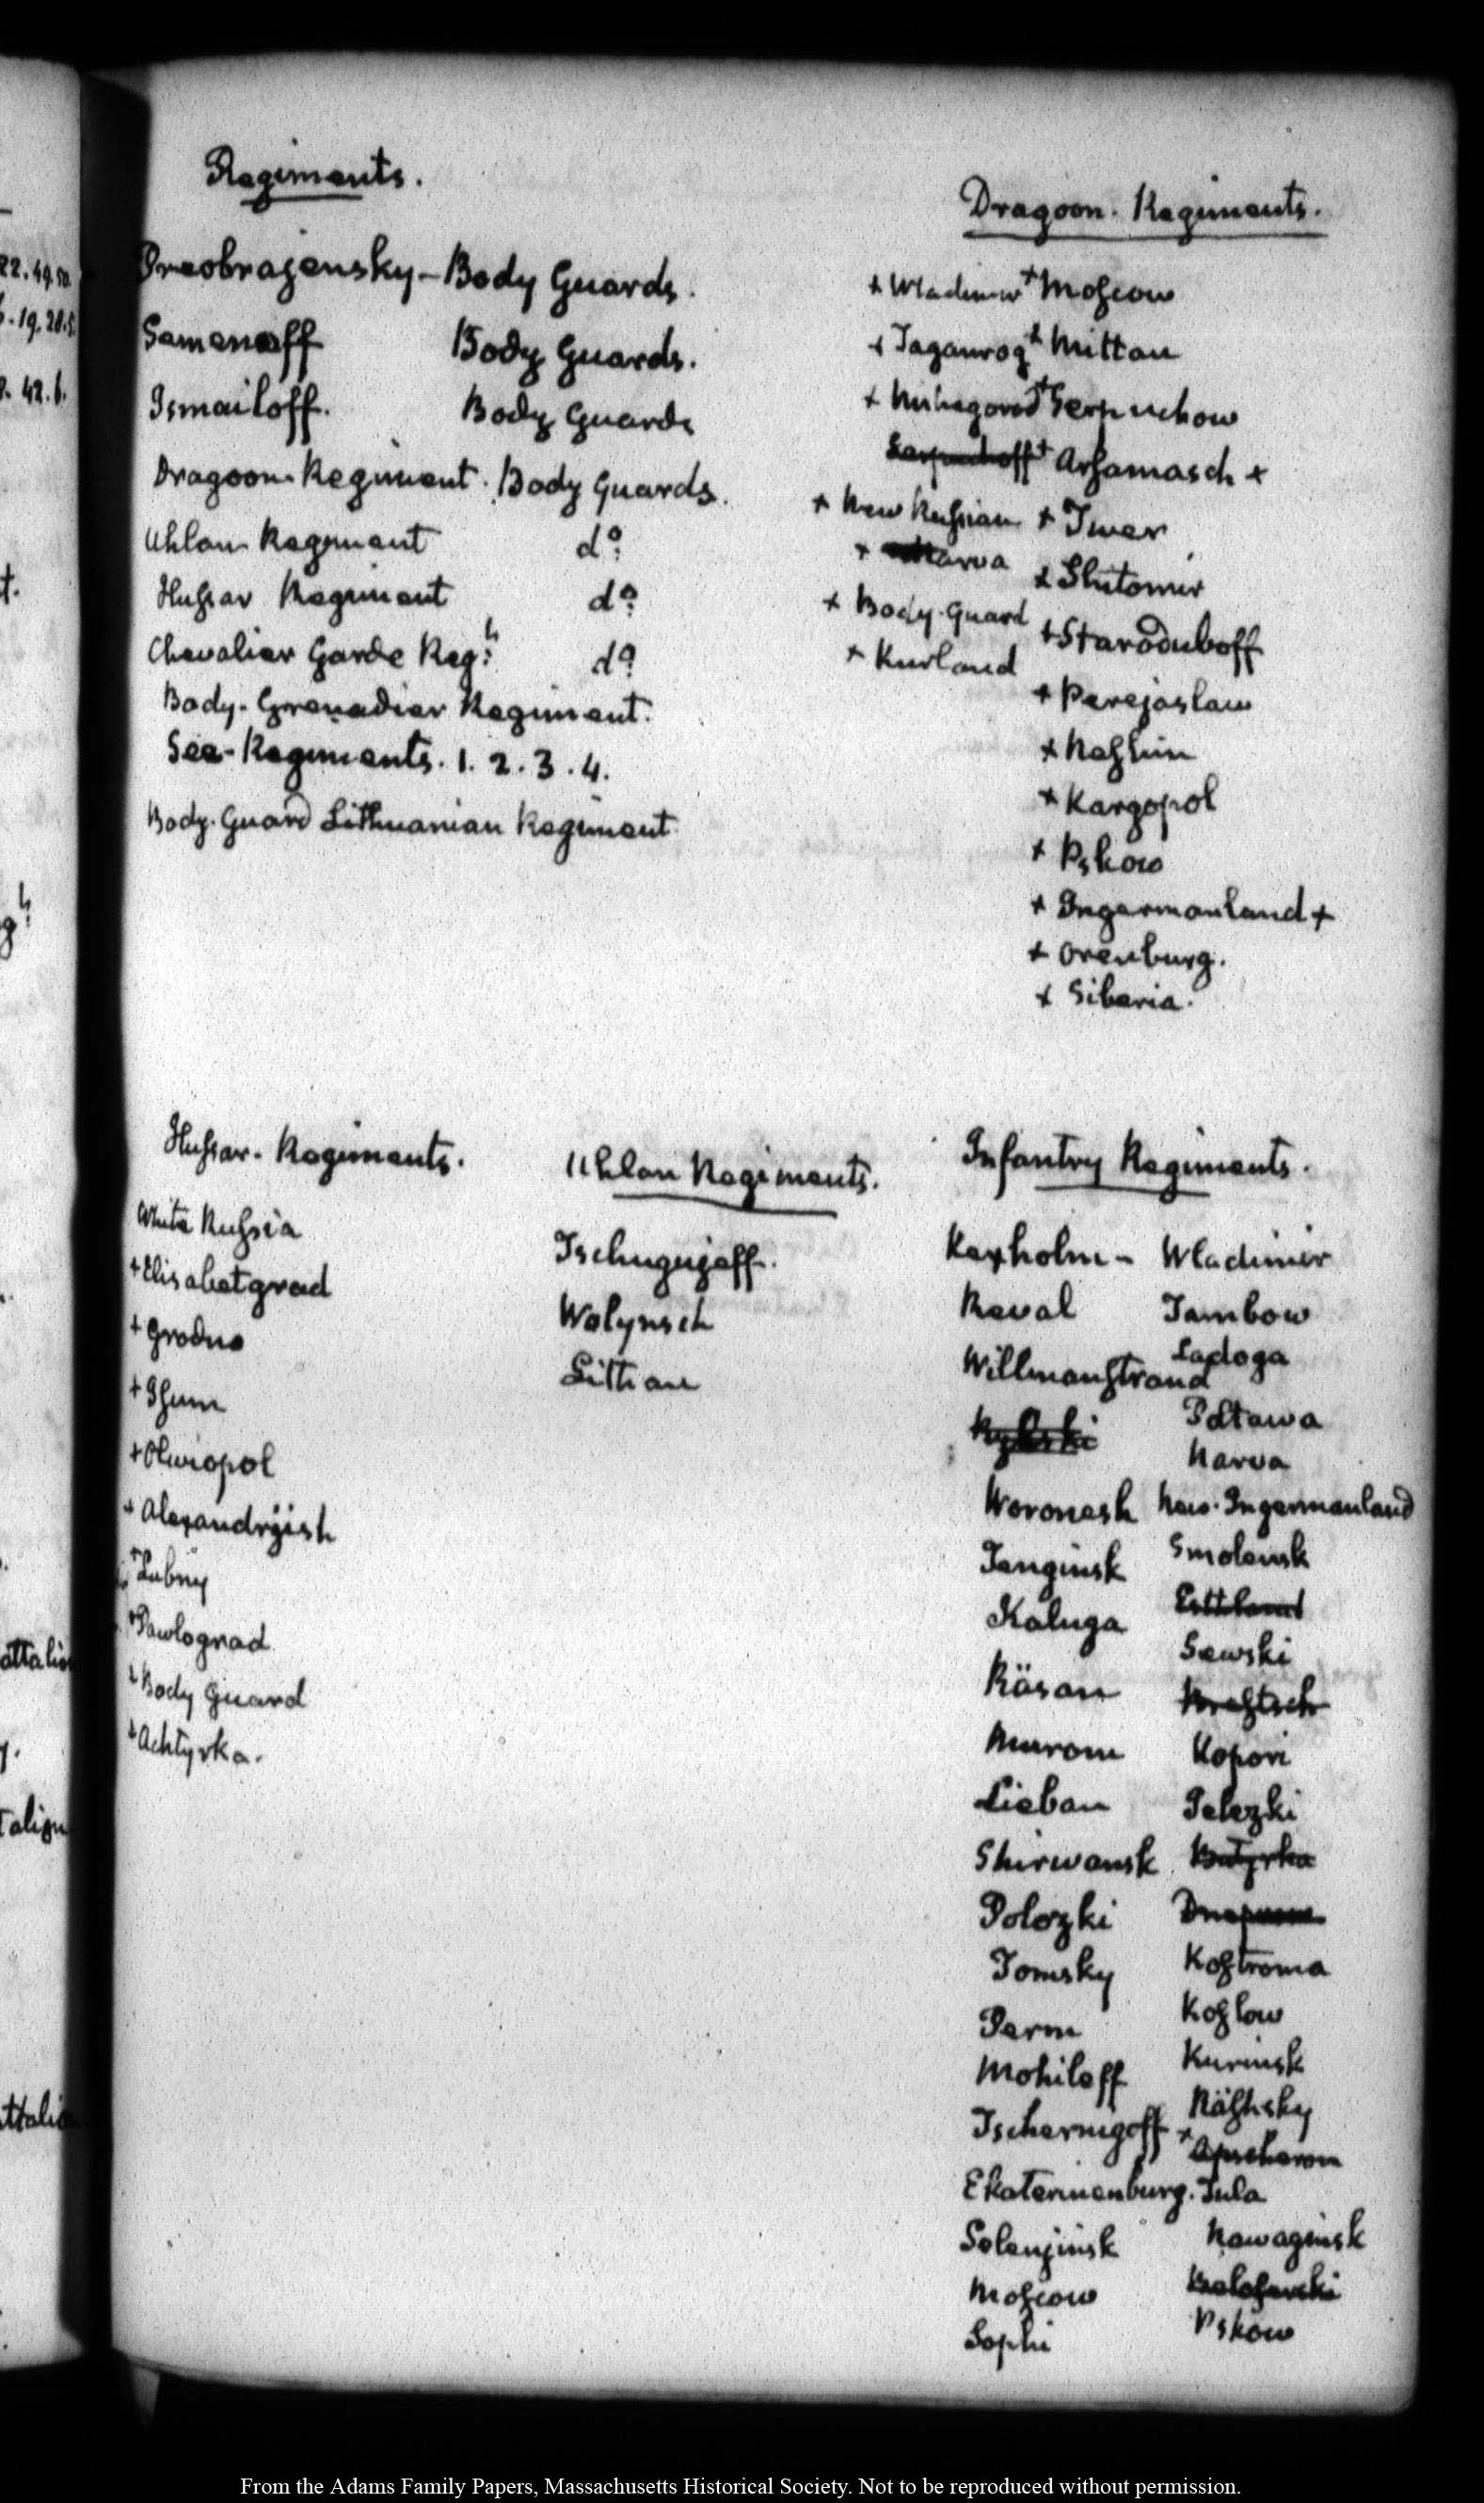 Regiments.
Preobragensky - Body Guards.
Semenoff Body Guards.
Ismailoff. Body Guards
Dragoon-Regiment. Body Guards.
Uhlan Regiment do.
Hussar Regiment do.
Chevalier Garde Regt. do.
Body-Grenadier Regiment.
See-Regiments. 1. 2. 3. 4.
Body-Guard Lithuanian Regiment
Dragoon. Regiments.
+ Wladimir + Moscow
+ Taganrog + Mittau
+ Nishegorod + Serpuchow
Serpuchoff + Arsamasch +
+ New Russian + Twer
+ Narva
+ Shitomir
+ Body-Guard
+ Staroduboff
+ Kurland
+ Perejaslaw
+ Neshin
+ Kargopol
+ Pskow
+ Ingermanland +
+ Orenburg.
+ Siberia.
Hussar-Regiments.
White Russia
+ Elisabetgrad
+ Grodno
+ Isum
+ Olwiopol
+ Alexandryish
+ Lubny
+ Pawlograd
+ Body Guard
+ Achtyrka.
Uhlan Regiments.
Tschugujeff.
Wolynsch
Littau
Infantry Regiments.
Kexholm - Wladimir
Reval Tambow
Ladoga
Willmanstrand
Rylski Poltawa
Narva
Woronesh New-Ingermanland
Tenginsk Smolensk
Kaluga Esthland
Sewski
Räsan Brestsch
Murom Kopori
Lieban Pelezki
Shirwansk Butyrka
Polozki
Tomsky Kostroma
Perm Koslow
Mohileff Kurinsk
Räshsky
Tschernigoff + Apscheron
Ekaterinenburg. Tula
Selenjinsk Nawaginsk
Moscow Beloserski
Sophi Pskow
22.49.50.
42.6.
From the Adams Family Papers, Massachusetts Historical Society. Not to be reproduced without permission.